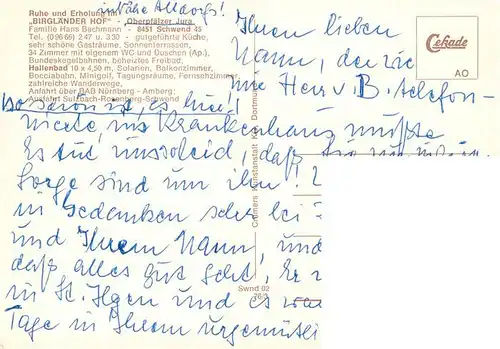 in Nähe Altdorfs!
Ruhe und Erholung im
"BIRGLÄNDER HOF" - Oberpfälzer Jura
Familie Hans Bachmann - 8451 Schwend 45
Tel. (09666) 247 u. 330 - gutgeführte Küche,
sehr schöne Gasträume, Sonnenterrassen,
34 Zimmer mit eigenem WC und Duschen (Ap.).
Bundeskegelbahnen, beheiztes Freibad,
Hallenbad 10 x 4,50 m, Solarien, Balkonzimmer,
Bocciabahn, Minigolf, Tagungsräume, Fernsehzimmer
zahlreiche Wanderwege,
Anfahrt über BAB Nürnberg - Amberg:
Ausfahrt Sulzbach-Rosenberg-Schwend
Cekade
AO
Ihren lieben
Mann, der wie
mir Herr v. B. telefon-
So schön ist es hier!
ierte, ins Krankenhaus mußte
Es tut uns leid, daß Sie nun in
Sorge sind um ihn!
in Gedanken sehr bei
und Ihrem Mann, und
daß alles gut geht, Er
in St. Ilgen und es war
Tage in Ihrem urgemütli
Cramers Kunstanstalt KG, Dortmund
Swnd 02